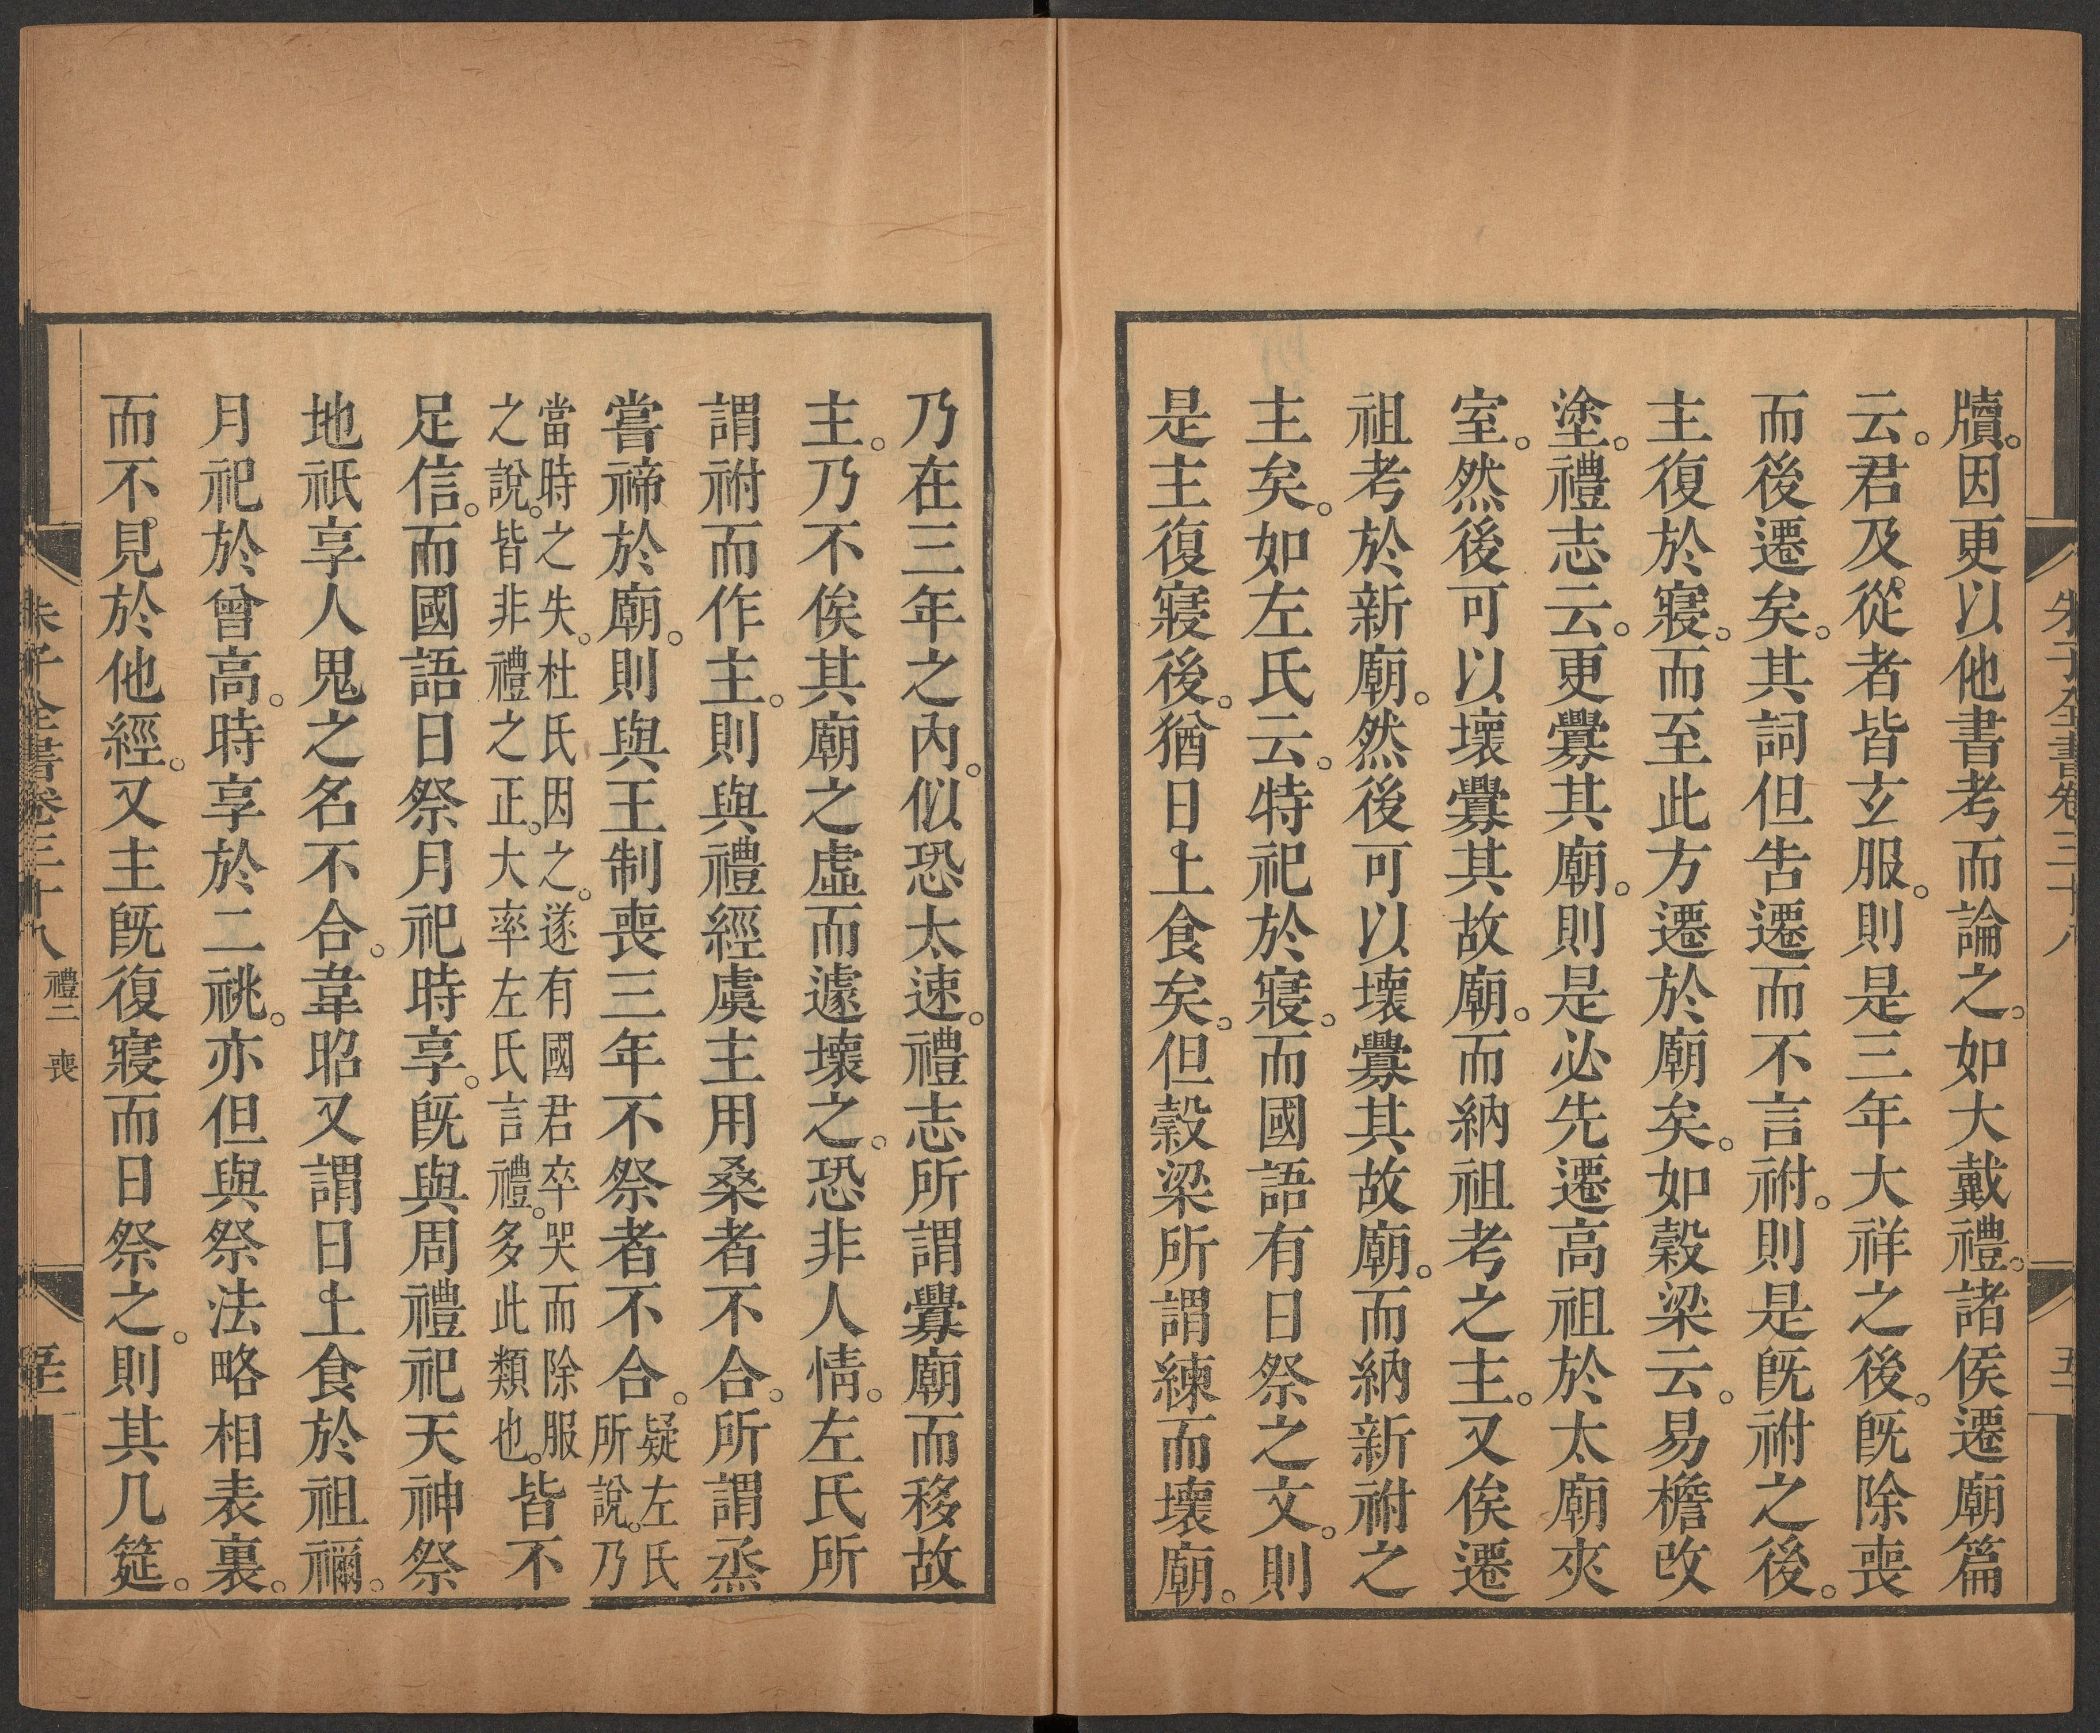 牘。因更以他書考而論之。如大戴禮。諸侯遷廟篇
云。君及從者皆玄服。則是三年大祥之後。旣除喪
而後遷矣。其詞但告遷而不言祔。則是旣祔之後。
主復於寢。而至此方遷於廟矣。如穀梁云。易檐改
塗。禮志云。更釁其廟。則是必先遷高祖於太廟夾
室。然後可以壞釁其故廟。而納祖考之主。又俟遷
祖考於新廟。然後可以壞釁其故廟。而納新祔之
主矣。如左氏云。特祀於寢。而國語有日祭之文。則
是主復寢後。猶日上食矣。但穀梁所謂練而壞廟。
乃在三年之內。似恐太速。禮志所謂釁廟而移故
主。乃不俟其廟之虛而遽壞之。恐非人情。左氏所
謂祔而作主。則與禮經虞主用桑者不合。所謂烝
嘗禘於廟。則與王制喪三年不祭者不合。疑左氏所說。乃
當時之失。杜氏因之。遂有國君卒哭而除服之說。皆非禮之正。大率左氏言禮。多此類也。皆不
足信。而國語日祭月祀時享。旣與周禮祀天神祭
地祇享人鬼之名不合。韋昭又謂日上食於祖禰。
月祀於曾高。時享於二祧。亦但與祭法略相表裏。
而不見於他經。又主旣復寢而日祭之。則其几筵。
朱子全書卷三十八 禮二 喪
朱子全書卷三十八